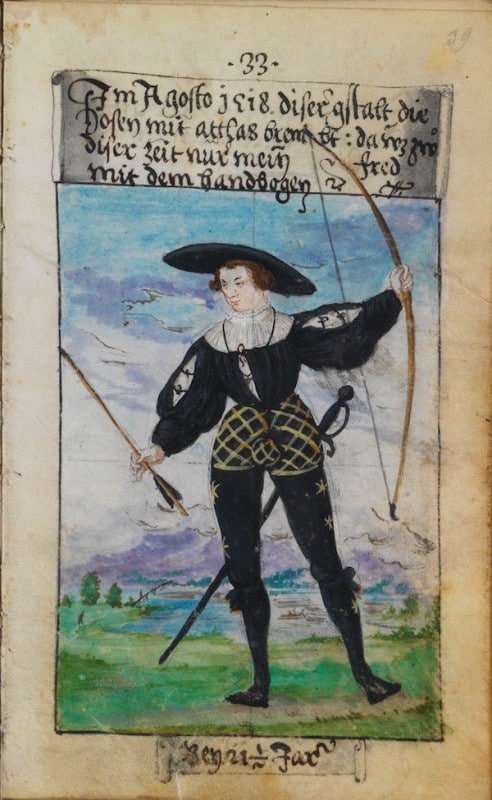 ·33·
39
Im Agosto 1518 diser gstalt die
Hosen mit atlhas brem bt : da waz zů
diser zeit nur mein fred
mit dem handbogen
Bey 21 1/2 Jar